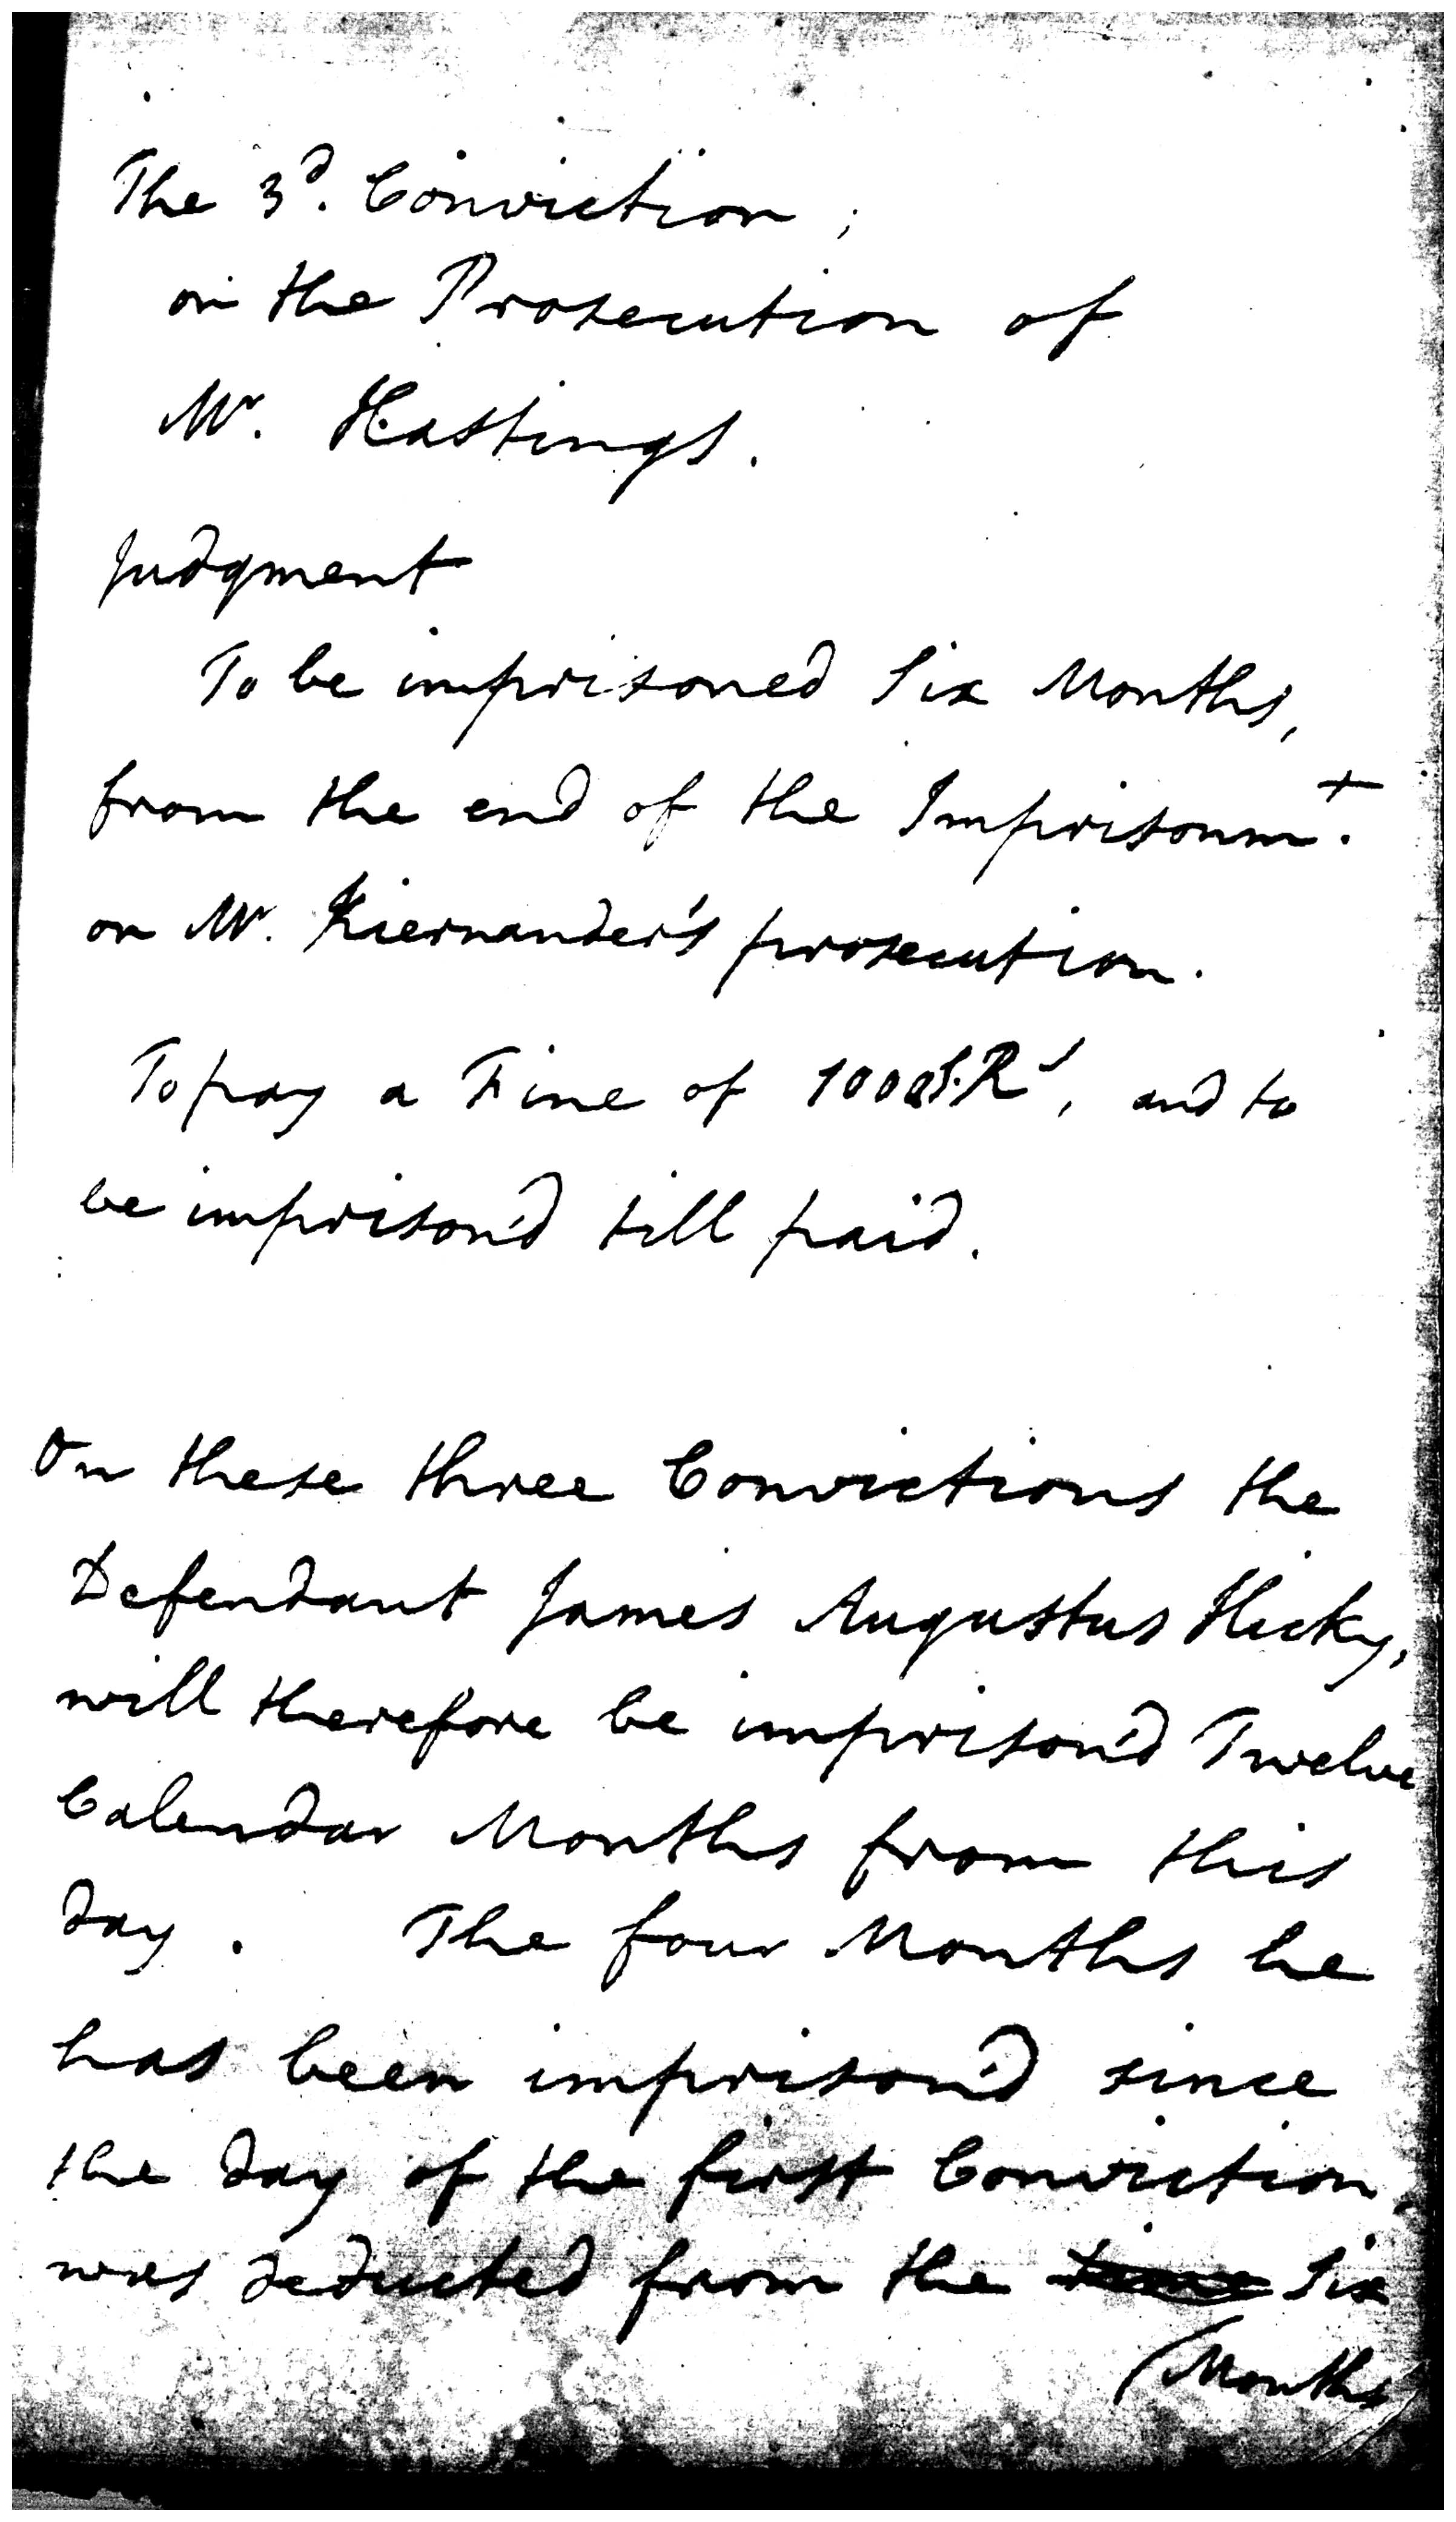 The 3d. Conviction;
on the Prosecution of
Mr. Hastings.
Judgment
To be imprisoned Six Months,
from the end of the Imprisonmt.
on Mr. Kiernander's prosecution.
To pay a Fine of 1000 S.Rs, and to
be imprison'd till paid.
On these three Convictions the
Defendant James Augustus Hicky,
will therefore be imprison'd Twelve
Calendar Months from this
day. The four Months he
has been imprison'd since
the day of the first Conviction,
was deducted from the time Six
(Months